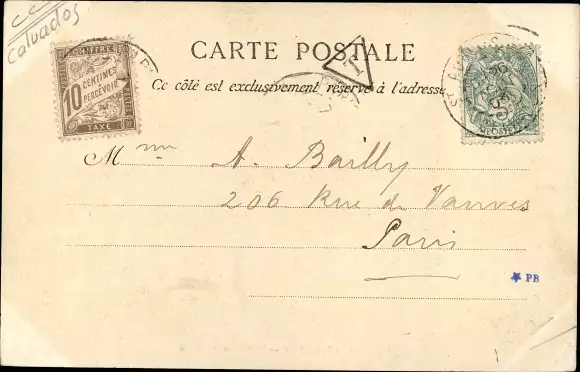 CC
Calvados
CHIFFRE
10 CENTIMES
À PERCEVOIR
TAXE
CARTE POSTALE
T
Ce côté est exclusivement réservé à l'adresse
POSTES
Mme A. Bailly
206 Rue de Vanves
Paris
PB